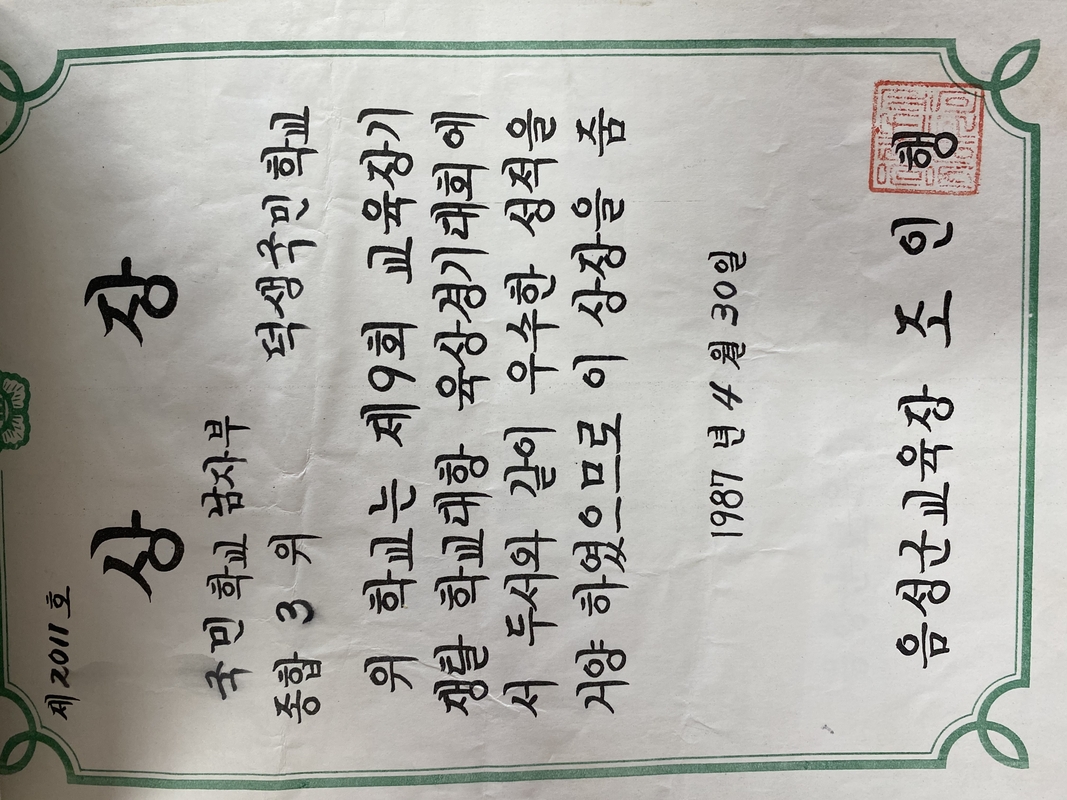 제2011호
상 장
국민학교 남자부
종합 3 위
덕생국민학교
위 학교는 제9회 교육장기
쟁탈 학교대항 육상경기대회에
서 두서와 같이 우수한 성적을
거양 하였으므로 이 상장을 줌
1987년 4월 30일
음성군교육장 조 인 행